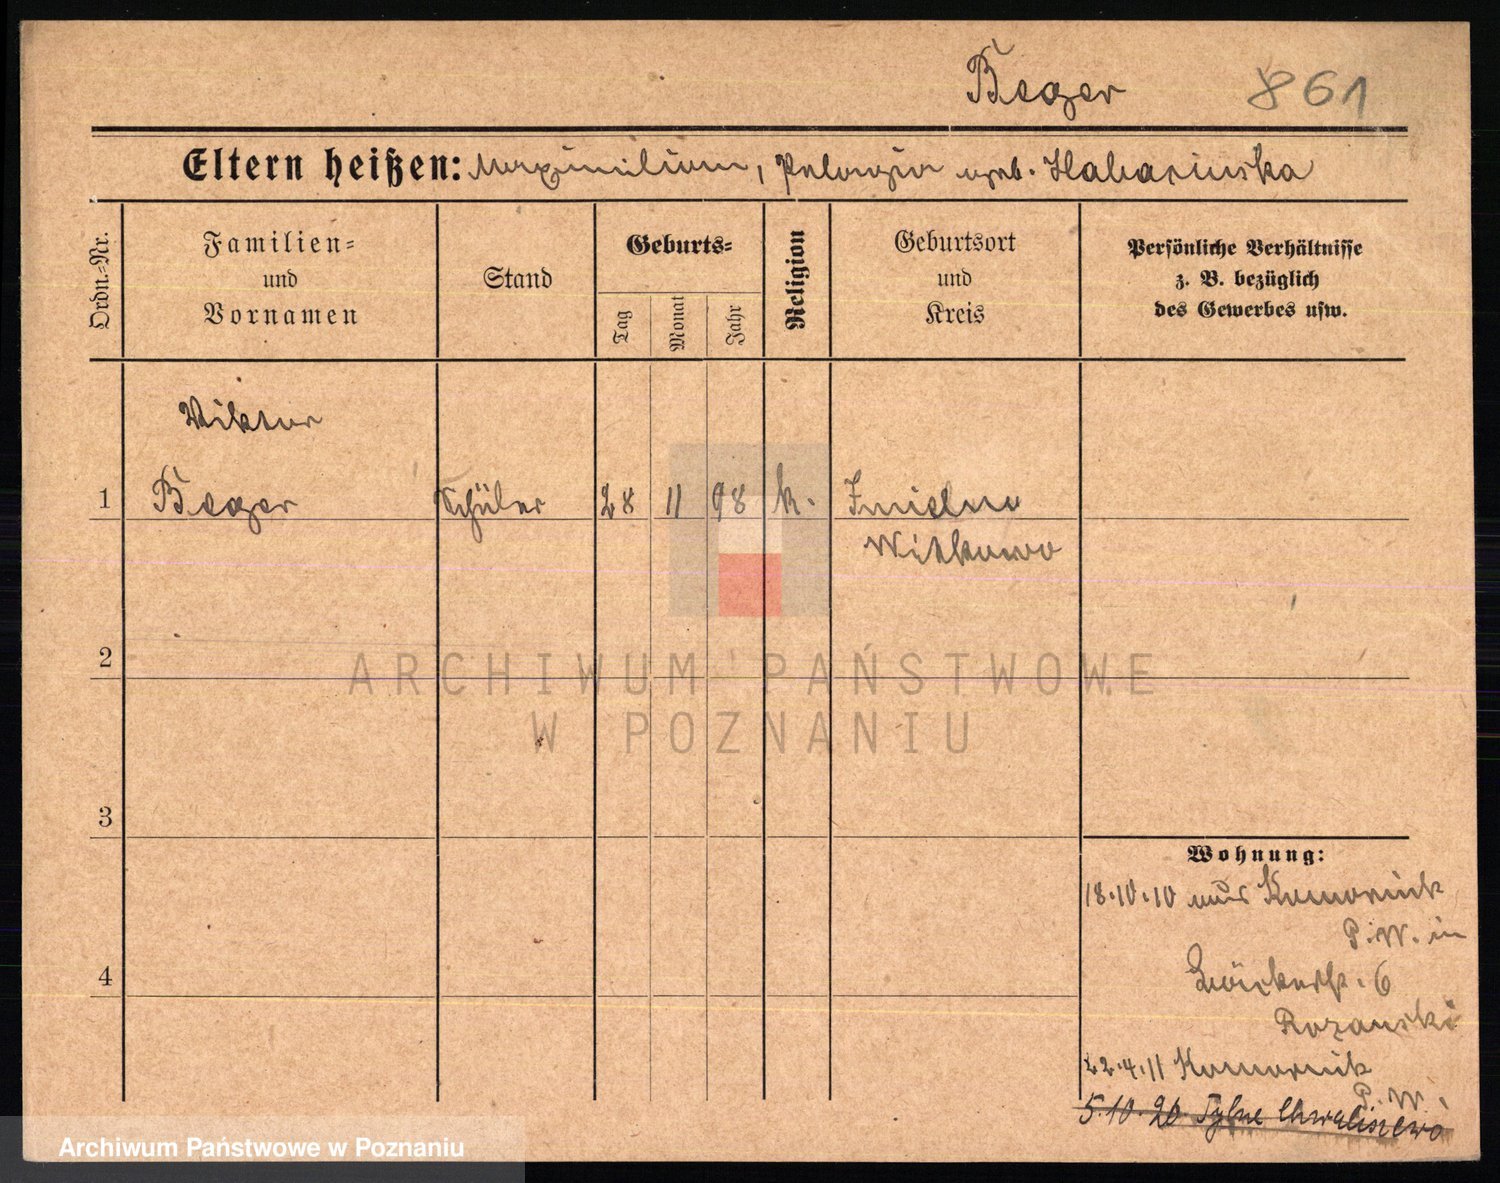 Beger 861
Eltern heißen: Maximilian, Pelagia geb. Habasinska
Ordn.-Nr.
Familien-
und
Vornamen
Stand
Geburts-
Tag
Monat
Jahr
Religion
Geburtsort
und
Kreis
Persönliche Verhältnisse
z. B. bezüglich
des Gewerbes usw.
Viktor
1 Beger Schüler 28 11 98 k. Imielno
Witkowo
2
3
4
Wohnung:
18.10.10 aus Komornik
P. W. in
6
Rozanski
22.4.11 Komornik
P. W.
5.10.20. Tylne Chwaliszewo
ARCHIWUM PAŃSTWOWE
W POZNANIU
Archiwum Państwowe w Poznaniu